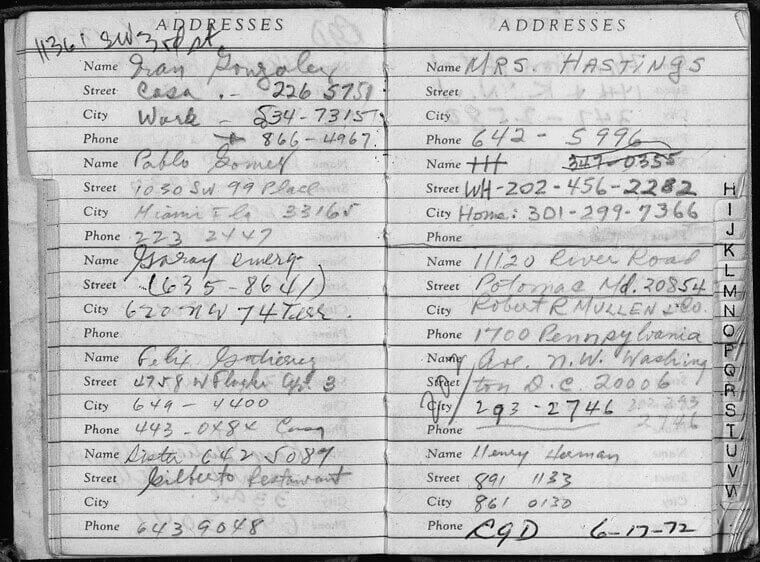 ADDRESSES
11361 SW 3rd st.
Name Ivan Gonzalez
Street Casa .- 226 5751
City Work - 534-7315
Phone → 866-4967.
Name Pablo Gomez
Street 1030 SW 99 Place
City Miami Fla 33165
Phone 223 2447
Name Garay emerg
Street (635-8641)
City 620 NW 74
Phone
Name Felix Gutierrez
Street 4758 W Flagler Apt. 3
City 649- 4400
Phone 443-0484 Casa
Name 642 5089
Street Gilberto Restaurant
City
Phone 643 9048
ADDRESSES
Name MRS. HASTINGS
Street
City
Phone 642- 5996
Name HH 347-0355
Street WH-202-456-2282
City Home: 301-299-7366
Phone
Name 11120 River Road
Street Potomac Md. 20854
City Robert R MULLEN & Co.
Phone 1700 Pennsylvania
Name Ave. N.W. Washing
Street ton D.C. 20006
City 293-2746 202-293
Phone 2746
Name Henry
Street 891 1133
City 861 0130
Phone RGD 6-17-72
H
I
J
K
L
M
N
O
P
Q
R
S
T
U
V
W